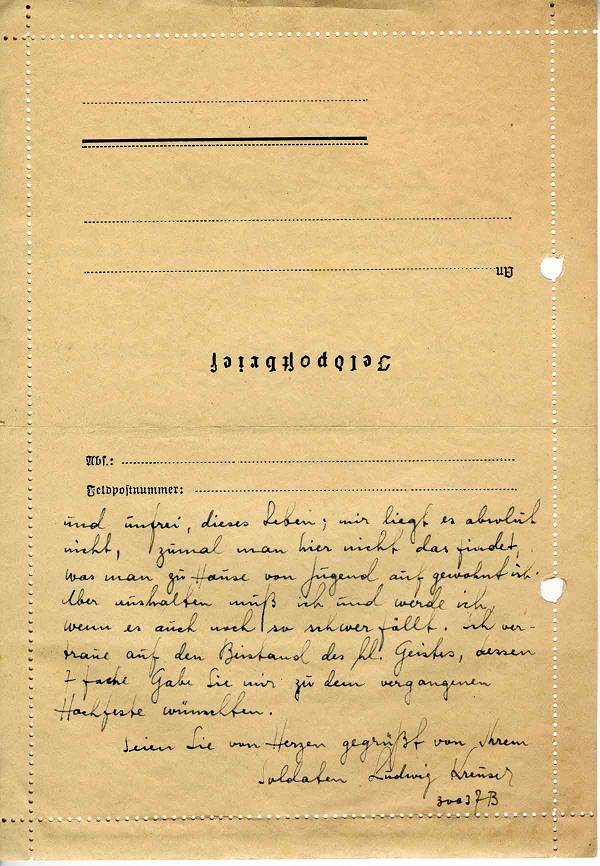 An
Feldpostbrief
Abs.:
Feldpostnummer:
und unfrei, dieses Leben; mir liegt es absolut
nicht, zumal man hier nicht das findet,
was man zu Hause von Jugend auf gewohnt ist.
Aber aushalten muß ich und werde ich,
wenn es auch noch so schwer fällt. Ich ver-
traue auf den Beistand des hl. Geistes, dessen
7 fache Gabe Sie mir zu dem vergangenen
Hochfeste wünschten.
Seien Sie von Herzen gegrüßt von Ihrem
Soldaten Ludwig Kreuser
30037B